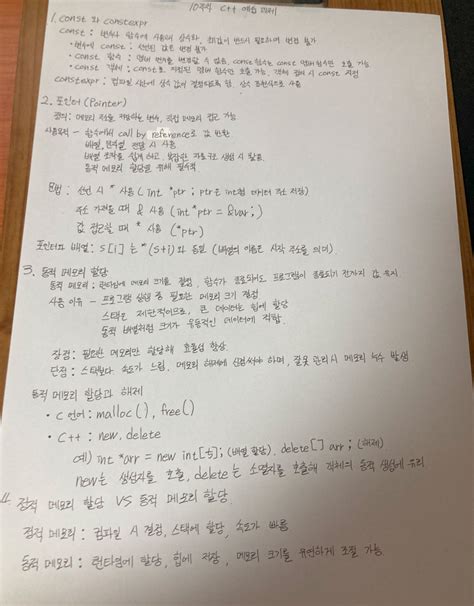 10주차 C++ 예습 과제
1. const 와 constexpr
const : 변수나 함수에 사용해 상수화, 초기값이 반드시 필요하며 변경 불가
• 변수에 const : 선언된 값은 변경 불가
• const 함수 : 멤버 변수를 변경할 수 없음, const 함수는 const 멤버 함수만 호출 가능
• const 객체 : const로 지정된 멤버 함수만 호출 가능, 객체 생성 시 const 지정
constexpr : 컴파일 시간에 상수 값이 결정되도록 함, 상수 표현식으로 사용
2. 포인터 (Pointer)
정의 : 메모리 주소를 저장하는 변수, 직접 메모리 접근 가능
사용목적 - 함수에서 call by reference로 값 반환
배열, 문자열 전달 시 사용
배열 조작을 쉽게 하고, 복잡한 자료구조 생성 시 활용
동적 메모리 할당을 위해 필수적
문법 : 선언 시 * 사용 ( int *ptr ; ptr은 int형 데이터 주소 저장)
주소 가져올 때 & 사용 (int *ptr = &var ;)
값 접근할 때 * 사용 (*ptr)
포인터와 배열 : s[i] 는 *(s+i) 와 동일 (배열의 이름은 시작 주소를 의미)
3. 동적 메모리 할당
동적 메모리 : 런타임에 메모리 크기를 결정, 함수가 종료되어도 프로그램이 종료되기 전까지 값 유지
사용 이유 - 프로그램 실행 중 필요한 메모리 크기 결정
스택은 제한적이므로, 큰 데이터는 힙에 할당
동적 배열처럼 크기가 유동적인 데이터에 적합
장점 : 필요한 메모리만 할당해 효율성 향상
단점 : 스택보다 속도가 느림, 메모리 해제에 신경써야 하며, 잘못 관리 시 메모리 누수 발생
동적 메모리 할당과 해제
• C 언어 : malloc ( ), free ( )
• C++ : new, delete
예) int *arr = new int[5]; (배열 할당), delete[] arr ; (해제)
new는 생성자를 호출, delete는 소멸자를 호출해 객체의 동적 생성에 유리
4. 정적 메모리 할당 VS 동적 메모리 할당
정적 메모리 : 컴파일 시 결정, 스택에 할당, 속도가 빠름
동적 메모리 : 런타임에 할당, 힙에 저장, 메모리 크기를 유연하게 조절 가능